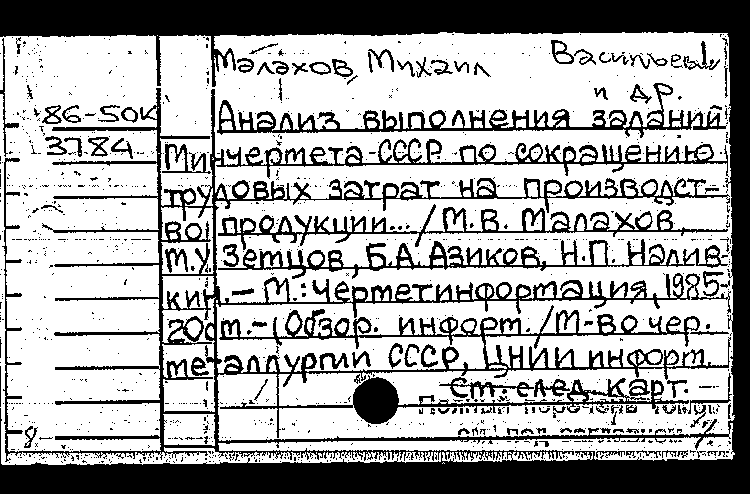 Малахов, Михаил Васильев
и др.
86-50К
3784
Анализ выполнения заданий
Минчермета СССР по сокращению
трудовых затрат на производст-
во продукции... / М.В. Малахов,
М.У. Земцов, Б.А. Азиков, Н.П. Налив-
кин. – М.: Черметинформация, 1985.-
20с м. - (Обзор. информ. / М-во чер.
металлургии СССР, ЦНИИ информ.
См. след. карт.
Полный перечень
см. под заглавием
8